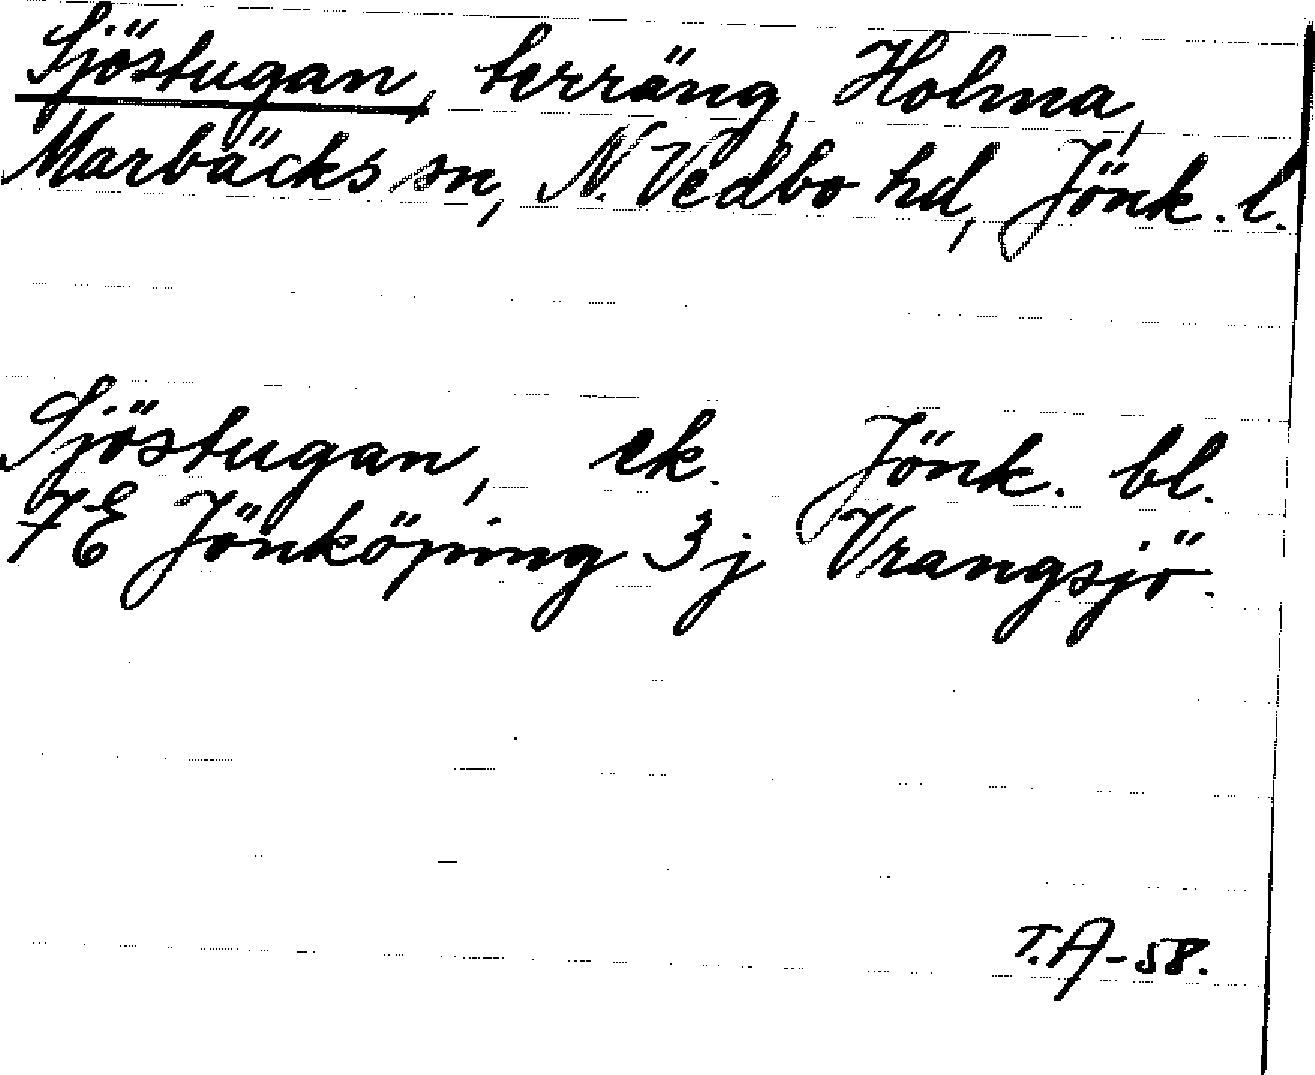 Sjöstugan, terräng, Holma,
Marbäcks sn, N. Vedbo hd, Jönk. l.
Sjöstugan, ek. Jönk. bl.
7E Jönköping 3j Vrangsjö.
T.A-58.